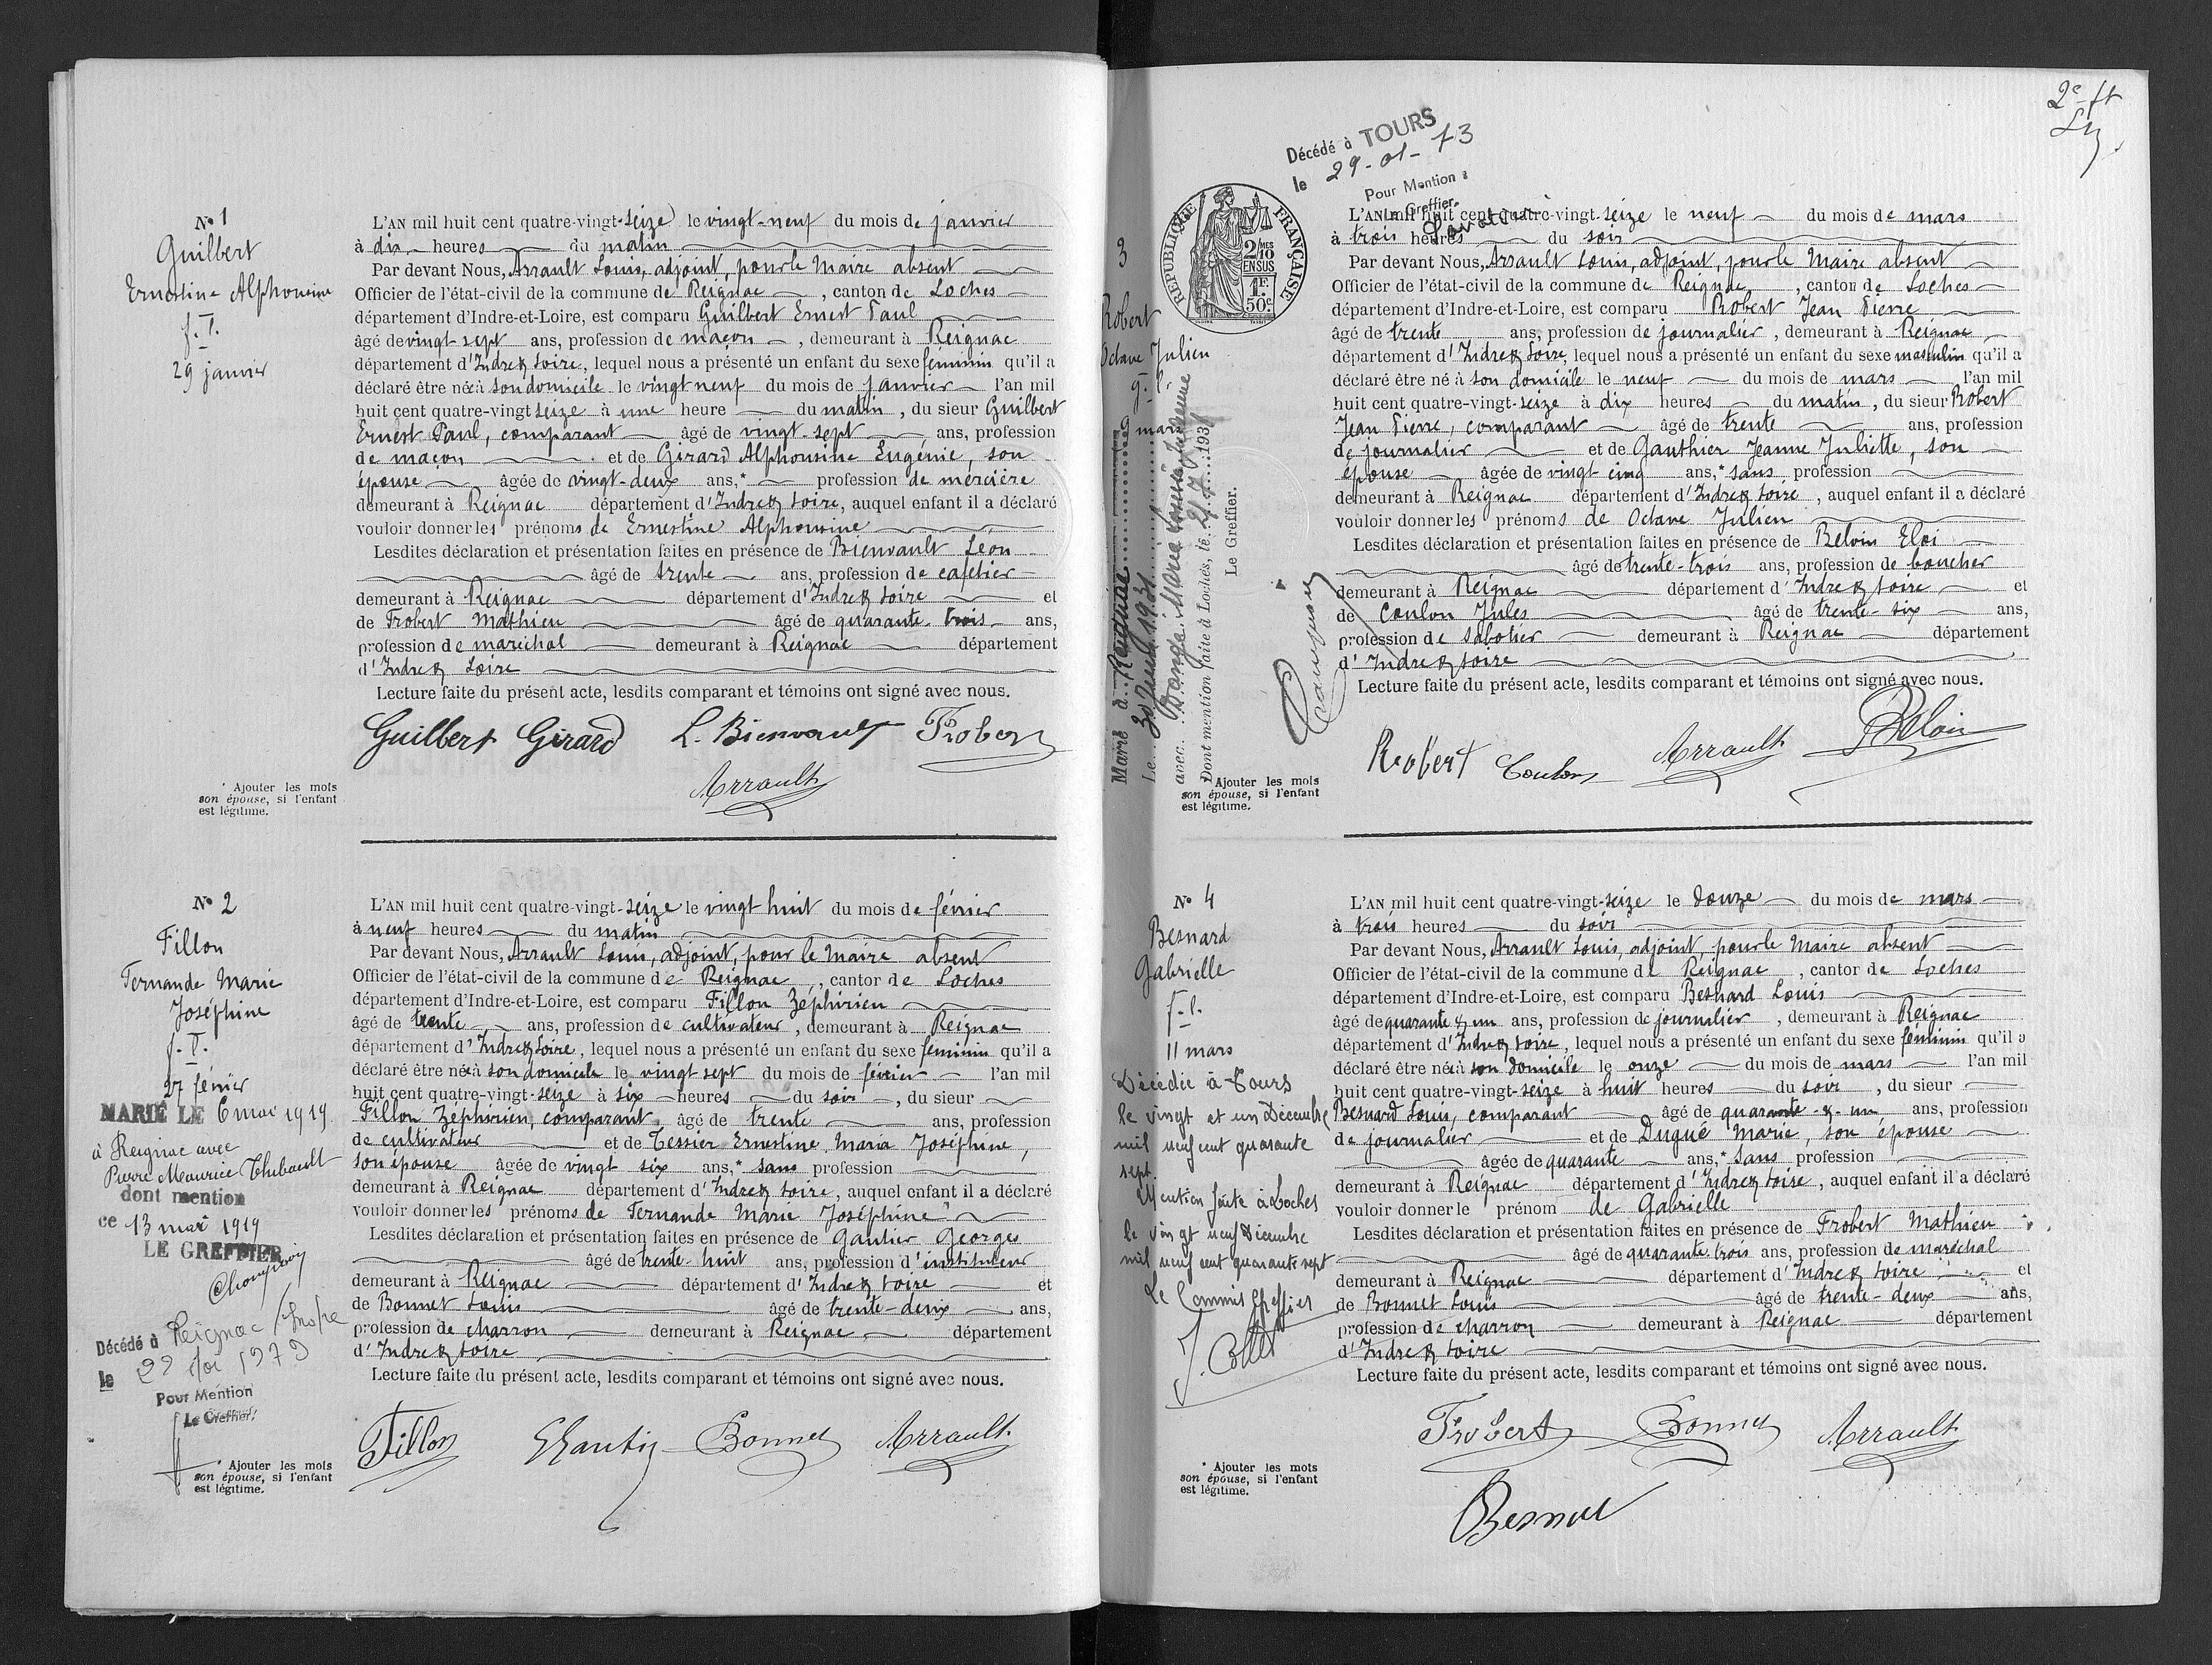 N° 1
Guilbert
Ernestine Alphonsine
f. l.
29 janvier
L'AN mil huit cent quatre-vingt-seize le vingt-neuf du mois de janvier
à dix heures du matin
Par devant Nous, Arrault Louis, adjoint, pour le Maire absent
Officier de l'état-civil de la commune de Reignac, canton de Loches
département d'Indre-et-Loire, est comparu Guilbert Ernest Paul
âgé de vingt-sept ans, profession de maçon, demeurant à Reignac
département d'Indre & Loire, lequel nous a présenté un enfant du sexe féminin qu'il a
déclaré être née à son domicile le vingt neuf du mois de janvier l'an mil
huit cent quatre-vingt seize à une heure du matin, du sieur Guilbert
Ernest Paul, comparant âgé de vingt-sept ans, profession
de maçon et de Girard Alphonsine Eugénie, son
épouse âgée de vingt-deux ans,* profession de mercière
demeurant à Reignac département d'Indre & Loire, auquel enfant il a déclaré
vouloir donner les prénoms de Ernestine Alphonsine
Lesdites déclaration et présentation faites en présence de Bienvault Léon
âgé de trente ans, profession de cafetier
demeurant à Reignac département d'Indre & Loire et
de Frobert Mathieu âgé de quarante-trois ans,
profession de maréchal demeurant à Reignac département
d'Indre & Loire
Lecture faite du présent acte, lesdits comparant et témoins ont signé avec nous.
Guilbert Girard L. Bienvault Frobert
Arrault
* Ajouter les mots
son épouse, si l'enfant
est légitime.
N° 2
Fillon
Fernande Marie
Joséphine
f. l.
27 février
MARIÉ LE 6 mai 1919
à Reignac avec
Pierre Maurice Thibault
dont mention
ce 13 mai 1919
LE GREFFIER
Décédé à Reignac
le
Pour Mention
Le Greffier,
L'AN mil huit cent quatre-vingt-seize le vingt huit du mois de février
à neuf heures du matin
Par devant Nous, Arrault Louis, adjoint, pour le Maire absent
Officier de l'état-civil de la commune de Reignac, canton de Loches
département d'Indre-et-Loire, est comparu Fillon Zéphirien
âgé de trente ans, profession de cultivateur, demeurant à Reignac
département d'Indre & Loire, lequel nous a présenté un enfant du sexe féminin qu'il a
déclaré être née à son domicile le vingt sept du mois de février l'an mil
huit cent quatre-vingt-seize à six heures du soir, du sieur
Fillon Zéphirien, comparant, âgé de trente ans, profession
de cultivateur et de Tessier Ernestine Maria Joséphine,
son épouse âgée de vingt six ans,* sans profession
demeurant à Reignac département d'Indre & Loire, auquel enfant il a déclaré
vouloir donner les prénoms de Fernande Marie Joséphine
Lesdites déclaration et présentation faites en présence de Gautier Georges
âgé de trente-huit ans, profession d'instituteur
demeurant à Reignac département d'Indre & Loire et
de Bonnet Louis âgé de trente-deux ans,
profession de charron demeurant à Reignac département
d'Indre & Loire
Lecture faite du présent acte, lesdits comparant et témoins ont signé avec nous.
Fillon GGautier Bonnet Arrault
* Ajouter les mots
son épouse, si l'enfant
est légitime.
2e ft
Décédé à TOURS
le 29-01-73
Pour Mention :
Le Greffier.
RÉPUBLIQUE FRANÇAISE
2/10MES
EN SUS
1F.
50c.
3
Robert
Octave Julien
g. l.
9 mars
Marié à
Le 30 1931
avec
Dont mention faite à Loches, le 2.7.1931
Le Greffier.
L'AN mil huit cent quatre-vingt-seize le neuf du mois de mars
à trois heures du soir
Par devant Nous, Arrault Louis, adjoint, pour le Maire absent
Officier de l'état-civil de la commune de Reignac, canton de Loches
département d'Indre-et-Loire, est comparu Robert Jean Pierre
âgé de trente ans, profession de journalier, demeurant à Reignac
département d'Indre & Loire, lequel nous a présenté un enfant du sexe masculin qu'il a
déclaré être né à son domicile le neuf du mois de mars l'an mil
huit cent quatre-vingt-seize à dix heures du matin, du sieur Robert
Jean Pierre, comparant âgé de trente ans, profession
de journalier et de Gauthier Jeanne Juliette, son
épouse âgée de vingt-cinq ans,* sans profession
demeurant à Reignac département d'Indre & Loire, auquel enfant il a déclaré
vouloir donner les prénoms de Octave Julien
Lesdites déclaration et présentation faites en présence de Beloin Eloi
âgé de trente-trois ans, profession de boucher
demeurant à Reignac département d'Indre & Loire et
de Coulon Jules âgé de trente-six ans,
profession de sabotier demeurant à Reignac département
d'Indre & Loire
Lecture faite du présent acte, lesdits comparant et témoins ont signé avec nous.
Robert Coulon Arrault Beloin
* Ajouter les mots
son épouse, si l'enfant
est légitime.
N° 4
Besnard
Gabrielle
f. l.
11 mars
Décédée à Tours
le vingt et un Décembre
mil neuf cent quarante
sept.
Mention faite à Loches
le vingt neuf Décembre
mil neuf cent quarante sept
Le Commis Greffier
L'AN mil huit cent quatre-vingt-seize le douze du mois de mars
à trois heures du soir
Par devant Nous, Arrault Louis, adjoint, pour le Maire absent
Officier de l'état-civil de la commune de Reignac, canton de Loches
département d'Indre-et-Loire, est comparu Besnard Louis
âgé de quarante & un ans, profession de journalier, demeurant à Reignac
département d'Indre & Loire, lequel nous a présenté un enfant du sexe féminin qu'il a
déclaré être née à son domicile le onze du mois de mars l'an mil
huit cent quatre-vingt-seize à huit heures du soir, du sieur
Besnard Louis, comparant âgé de quarante-&-un ans, profession
de journalier et de Dugué Marie, son épouse
âgée de quarante ans,* sans profession
demeurant à Reignac département d'Indre & Loire, auquel enfant il a déclaré
vouloir donner le prénom de Gabrielle
Lesdites déclaration et présentation faites en présence de Frobert Mathieu
âgé de quarante-trois ans, profession de maréchal
demeurant à Reignac département d'Indre & Loire et
de Bonnet Louis âgé de trente-deux ans,
profession de charron demeurant à Reignac département
d'Indre & Loire
Lecture faite du présent acte, lesdits comparant et témoins ont signé avec nous.
Frobert Bonnet Arrault
Besnard
* Ajouter les mots
son épouse, si l'enfant
est légitime.